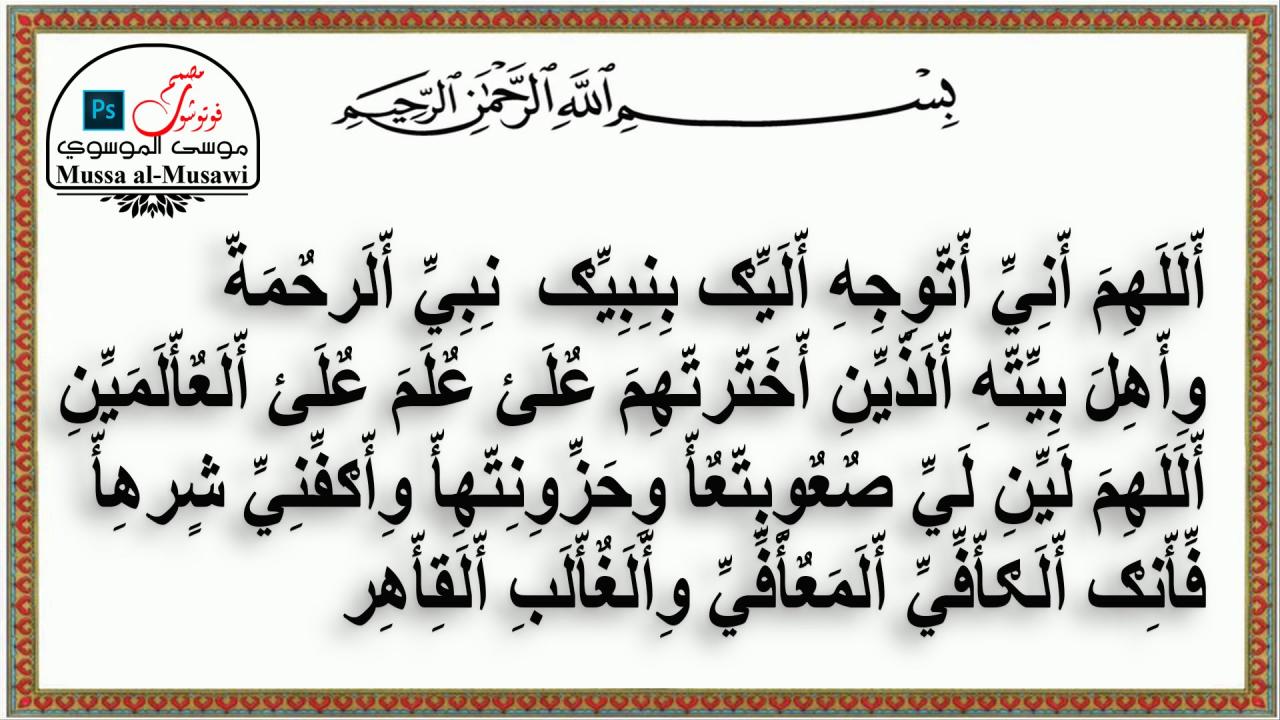 بِسْمِ ٱللَّهِ ٱلرَّحْمَٰنِ ٱلرَّحِيمِ
مصمم
Ps فوتوشوب
موسى الموسوي
Mussa al-Musawi
أَّلَلَهِمَ أَّنِيِّ أَّتّوجِهِ أَّلَيِّګ بِنِبِيِّګ نِبِيِّ أَّلَرحٌمَةّ
وأَّهِلَ بِيِّتّهِ أَّلَذِّيِّنِ أَّخَتّرتّهِمَ عٌلَىٰ عٌلَمَ عٌلَىٰ أَّلَعٌأَّلَمَيِّنِ
أَّلَلَهِمَ لَيِّنِ لَيِّ صٌعٌوبِتّعٌأَّ وحَزِّونِتّهِأَّ وأَّګفِّنِيِّ شٍرهِأَّ
فِّأَّنِګ أَّلَګأَّفِّيِّ أَّلَمَعٌأَّفِّيِّ وأَّلَغٌأَّلَبِ أَّلَقِأَّهِر